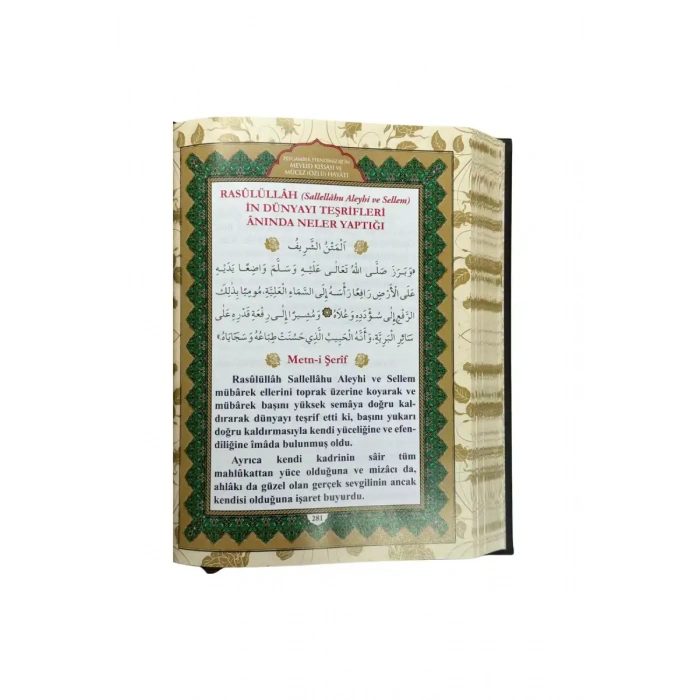 PEYGAMBER EFENDİMİZ'İN
MEVLİD KISSASI VE
MÛCİZ (ÖZLÜ) HAYATI
RASÛLÜLLÂH (Sallellâhu Aleyhi ve Sellem)
İN DÜNYAYI TEŞRİFLERİ
ÂNINDA NELER YAPTIĞI
اَلْمَتْنُ الشَّرِيفُ
«وَبَرَزَ صَلَّى اللهُ تَعَالَى عَلَيْهِ وَسَلَّمَ وَاضِعًا يَدَيْهِ
عَلَى الْأَرْضِ رَافِعًا رَأْسَهُ إِلَى السَّمَاءِ الْعَلِيَّةِ، مُومِيًا بِذٰلِكَ
الرَّفْعِ إِلَى سُؤْدَدِهِ وَعُلَاهُ ۞ وَمُشِيرًا إِلَى رِفْعَةِ قَدْرِهِ عَلَى
سَائِرِ الْبَرِيَّةِ، وَأَنَّهُ الْحَبِيبُ الَّذِي حَسُنَتْ طِبَاعُهُ وَسَجَايَاهُ»
Metn-i Şerîf
Rasûlüllâh Sallellâhu Aleyhi ve Sellem
mübârek ellerini toprak üzerine koyarak ve
mübârek başını yüksek semâya doğru kal-
dırarak dünyayı teşrif etti ki, başını yukarı
doğru kaldırmasıyla kendi yüceliğine ve efen-
diliğine îmâda bulunmuş oldu.
Ayrıca kendi kadrinin sâir tüm
mahlûkattan yüce olduğuna ve mizâcı da,
ahlâkı da güzel olan gerçek sevgilinin ancak
kendisi olduğuna işaret buyurdu.
281